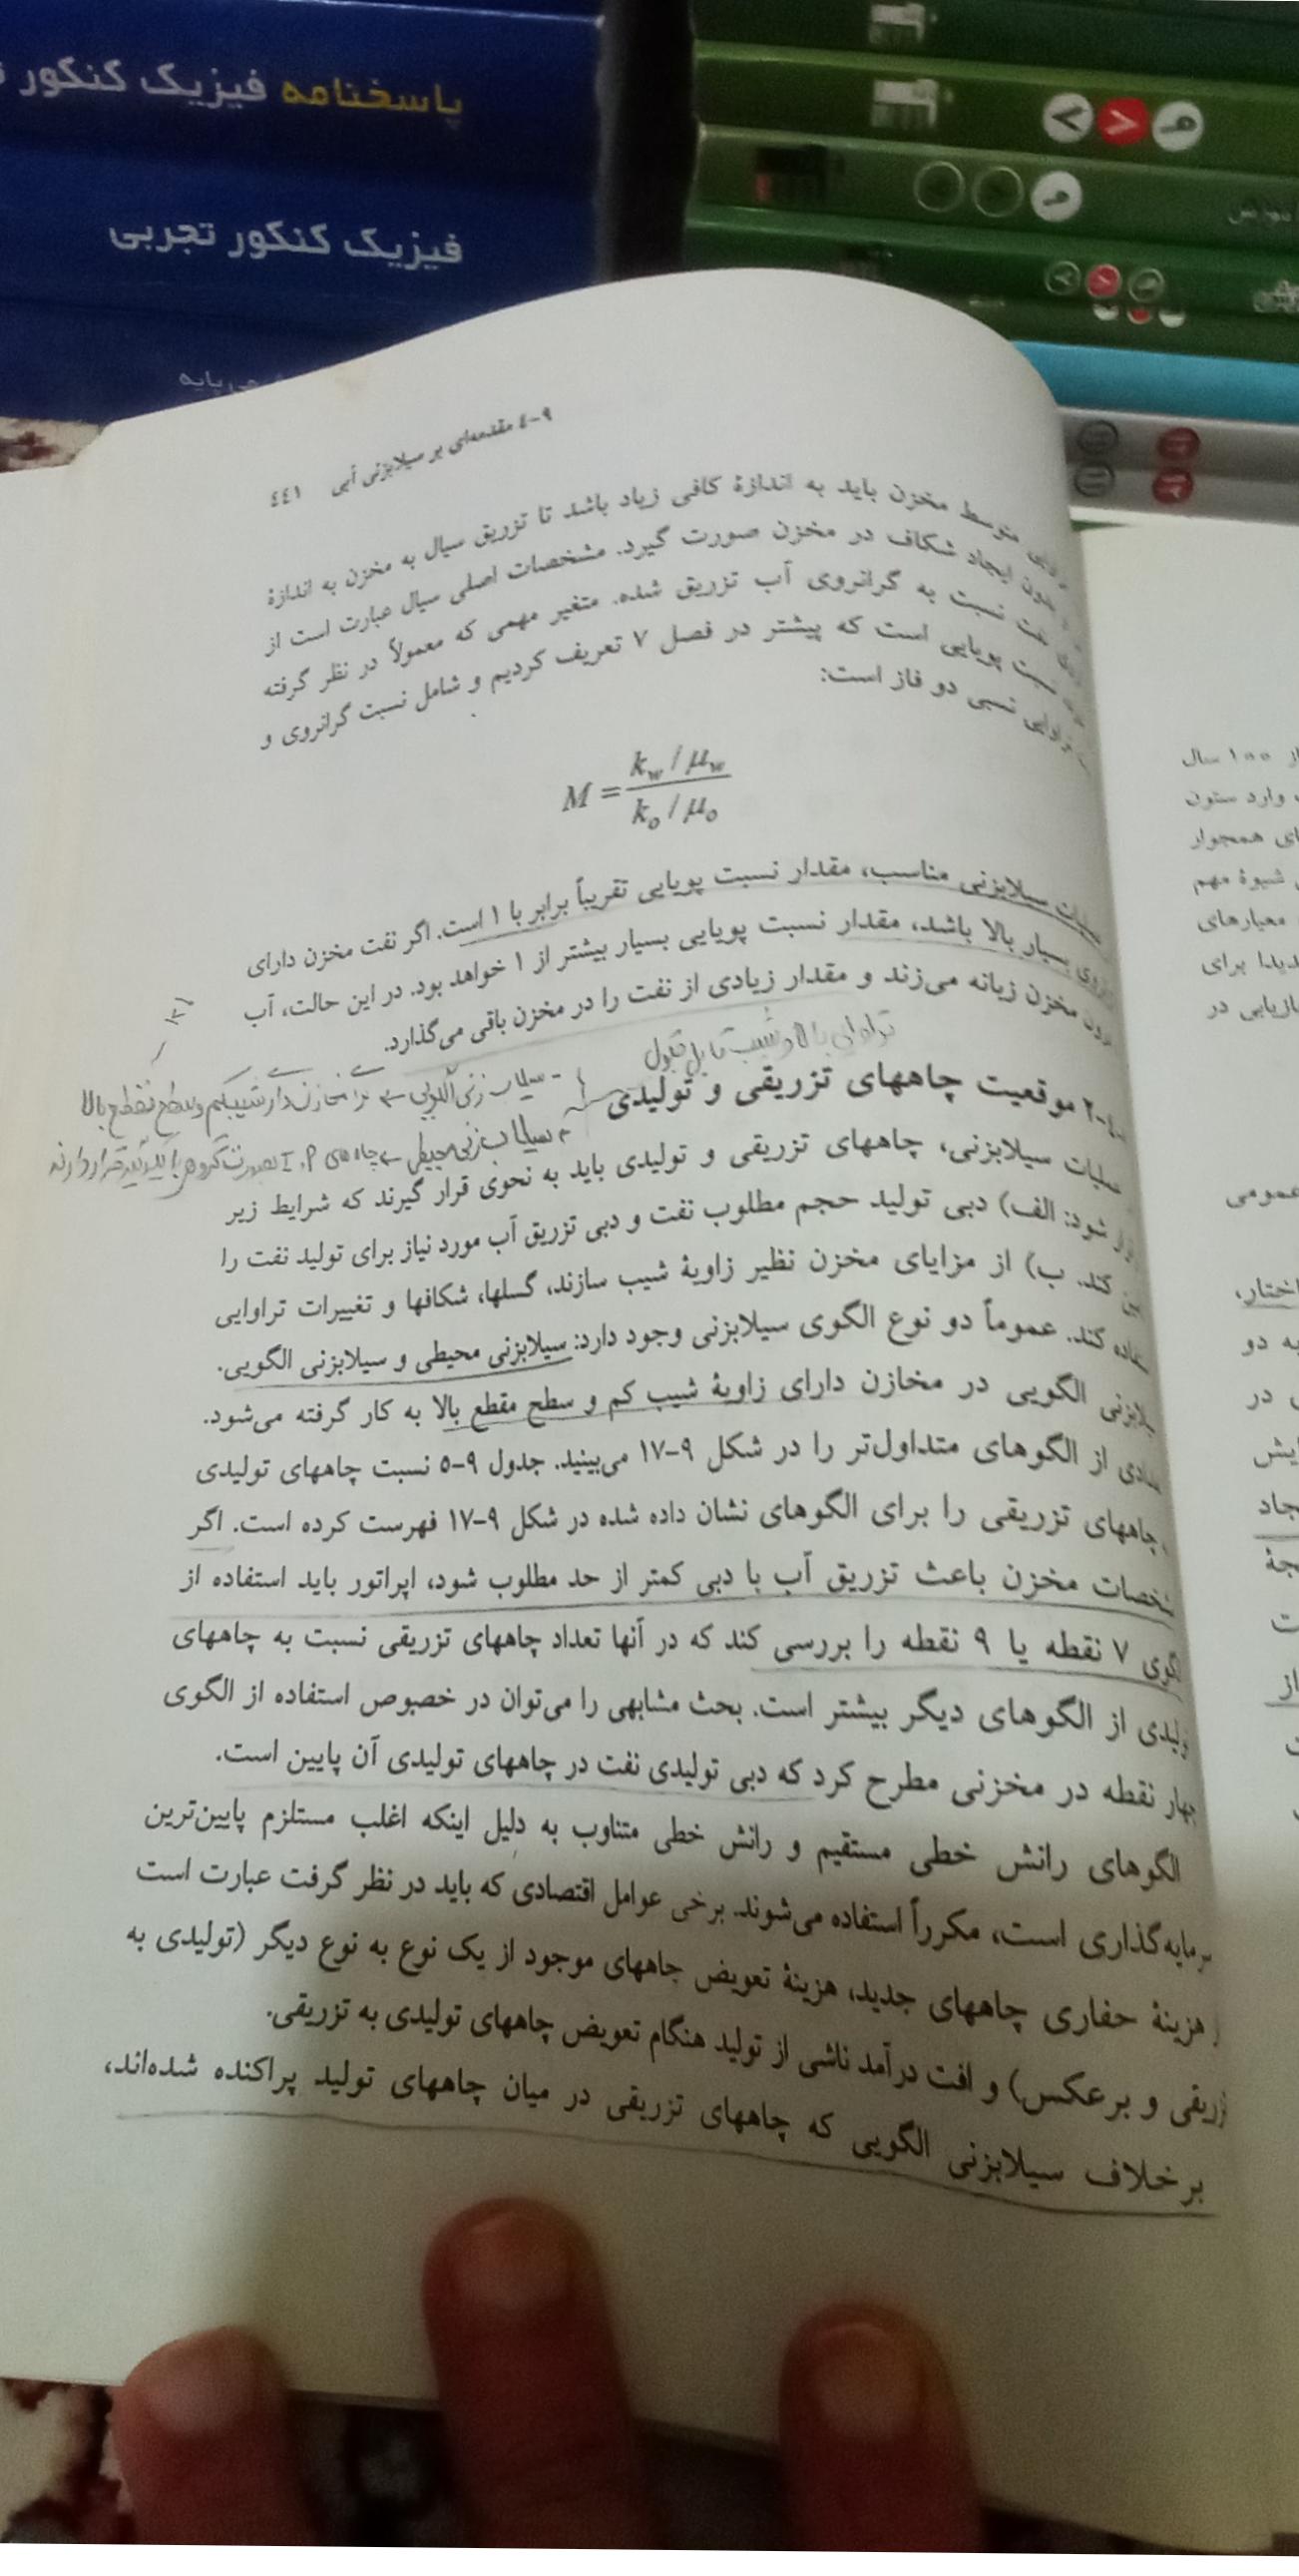 پاسخنامه فیزیک کنکور
فیزیک کنکور تجربی
۹-۴ مقدمه‌ای بر سیلابزنی آبی ۴۴۱
متوسط مخزن باید به اندازهٔ کافی زیاد باشد تا تزریق سیال به مخزن به اندازهٔ
بدون ایجاد شکاف در مخزن صورت گیرد. مشخصات اصلی سیال عبارت است از
نفت نسبت به گرانروی آب تزریق شده. متغیر مهمی که معمولاً در نظر گرفته
نسبت پویایی است که پیشتر در فصل ۷ تعریف کردیم و شامل نسبت گرانروی و
تراوایی نسبی دو فاز است:
M = (k_w / μ_w) / (k_o / μ_o)
سیلابزنی مناسب، مقدار نسبت پویایی تقریباً برابر با ۱ است. اگر نفت مخزن دارای
بسیار بالا باشد، مقدار نسبت پویایی بسیار بیشتر از ۱ خواهد بود. در این حالت، آب
مخزن زبانه می‌زند و مقدار زیادی از نفت را در مخزن باقی می‌گذارد.
تراوایی بالا و شیب قابل قبول
موقعیت چاههای تزریقی و تولیدی
سیلاب زنی الگویی ← مخازن دارای شیب کم و سطح مقطع بالا
سیلاب زنی محیطی ← چاه های P, I بصورت گروهی با یکدیگر قرار دارند
عملیات سیلابزنی، چاههای تزریقی و تولیدی باید به نحوی قرار گیرند که شرایط زیر
شود: الف) دبی تولید حجم مطلوب نفت و دبی تزریق آب مورد نیاز برای تولید نفت را
کند. ب) از مزایای مخزن نظیر زاویهٔ شیب سازند، گسلها، شکافها و تغییرات تراوایی
کند. عموماً دو نوع الگوی سیلابزنی وجود دارد: سیلابزنی محیطی و سیلابزنی الگویی.
الگویی در مخازن دارای زاویهٔ شیب کم و سطح مقطع بالا به کار گرفته می‌شود.
از الگوهای متداول‌تر را در شکل ۹-۱۷ می‌بینید. جدول ۹-۵ نسبت چاههای تولیدی
چاههای تزریقی را برای الگوهای نشان داده شده در شکل ۹-۱۷ فهرست کرده است. اگر
مشخصات مخزن باعث تزریق آب با دبی کمتر از حد مطلوب شود، اپراتور باید استفاده از
الگوی ۷ نقطه یا ۹ نقطه را بررسی کند که در آنها تعداد چاههای تزریقی نسبت به چاههای
تولیدی از الگوهای دیگر بیشتر است. بحث مشابهی را می‌توان در خصوص استفاده از الگوی
چهار نقطه در مخزنی مطرح کرد که دبی تولیدی نفت در چاههای تولیدی آن پایین است.
الگوهای رانش خطی مستقیم و رانش خطی متناوب به دلیل اینکه اغلب مستلزم پایین‌ترین
سرمایه‌گذاری است، مکرراً استفاده می‌شوند. برخی عوامل اقتصادی که باید در نظر گرفت عبارت است
از هزینهٔ حفاری چاههای جدید، هزینهٔ تعویض چاههای موجود از یک نوع به نوع دیگر (تولیدی به
تزریقی و برعکس) و افت درآمد ناشی از تولید هنگام تعویض چاههای تولیدی به تزریقی.
برخلاف سیلابزنی الگویی که چاههای تزریقی در میان چاههای تولید پراکنده شده‌اند،
۱۰۰ سال
وارد ستون
همجوار
شیوهٔ مهم
معیارهای
برای
بازیابی در
عمومی